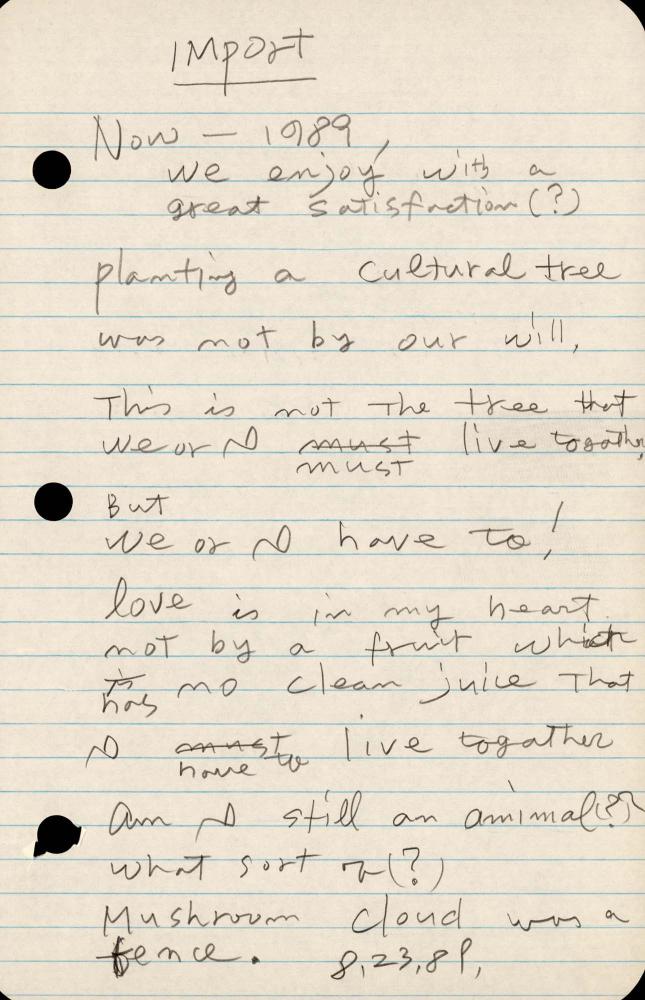 IMPORT
Now — 1989,
we enjoy with a
great satisfaction (?)
planting a cultural tree
was not by our will,
This is not the tree that
we or I must live togather
must
But
we or I have to!
love is in my heart
not by a fruit which
is no clean juice that
has
I must live togather
have to
Am I still an animal(?)
what sort (?)
Mushroom cloud was a
fence. 8,23,89,